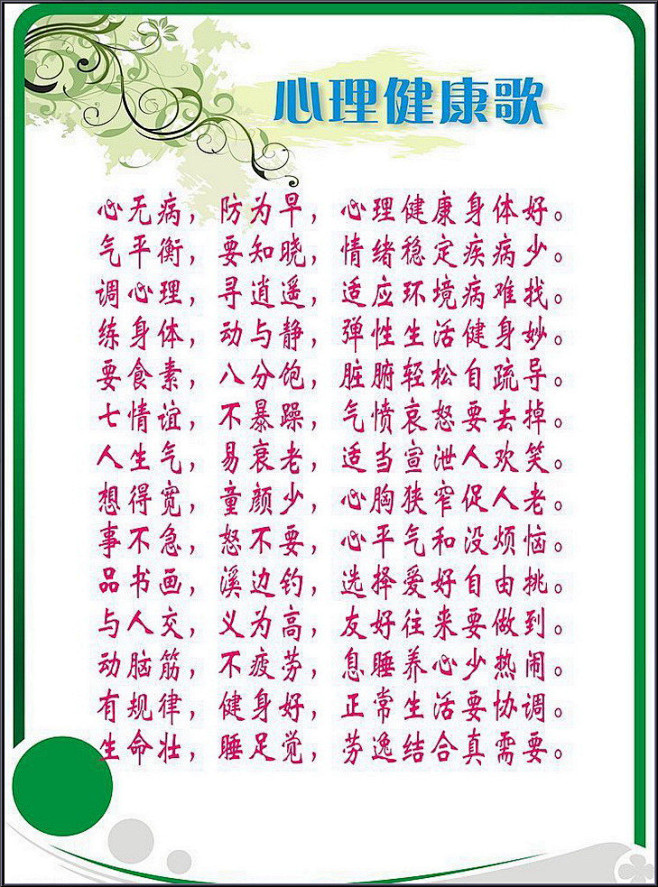 心理健康歌
心无病，防为早，心理健康身体好。
气平衡，要知晓，情绪稳定疾病少。
调心理，寻逍遥，适应环境病难找。
练身体，动与静，弹性生活健身妙。
要食素，八分饱，脏腑轻松自疏导。
七情谊，不暴躁，气愤哀怒要去掉。
人生气，易衰老，适当宣泄人欢笑。
想得宽，童颜少，心胸狭窄促人老。
事不急，怒不要，心平气和没烦恼。
品书画，溪边钓，选择爱好自由挑。
与人交，义为高，友好往来要做到。
动脑筋，不疲劳，息睡养心少热闹。
有规律，健身好，正常生活要协调。
生命壮，睡足觉，劳逸结合真需要。